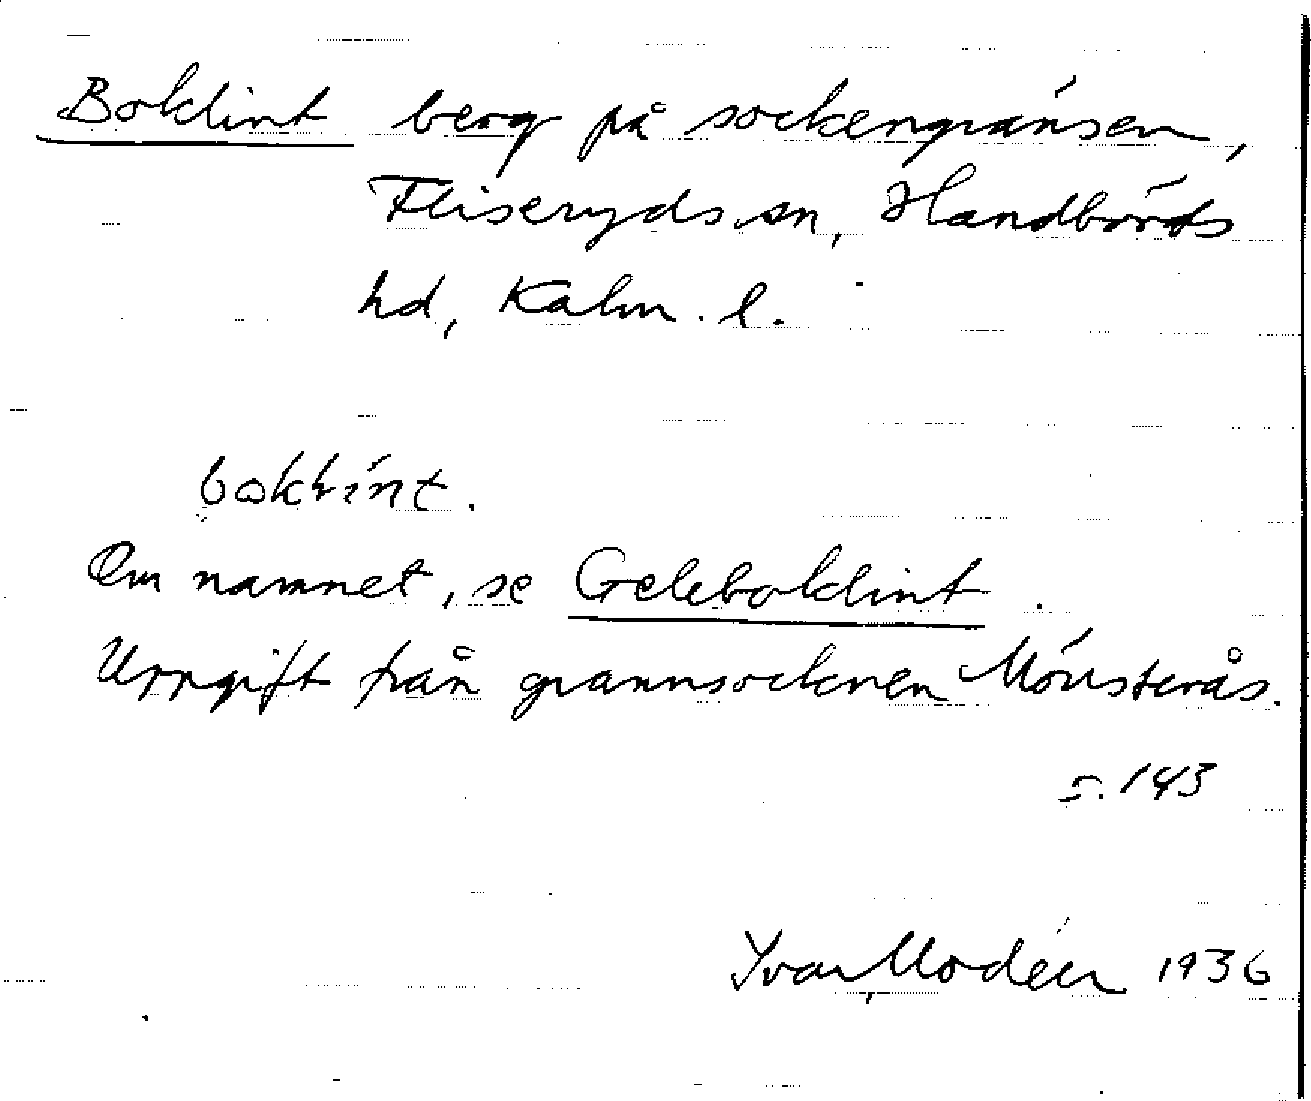 Boklint berg på sockengränsen,
Fliseryds sn, Handbörds
hd, Kalm. l.
Om namnet, se Geleboklint.
Uppgift från grannsocknen Mönsterås.
s. 143
Yvar Modéer 1936